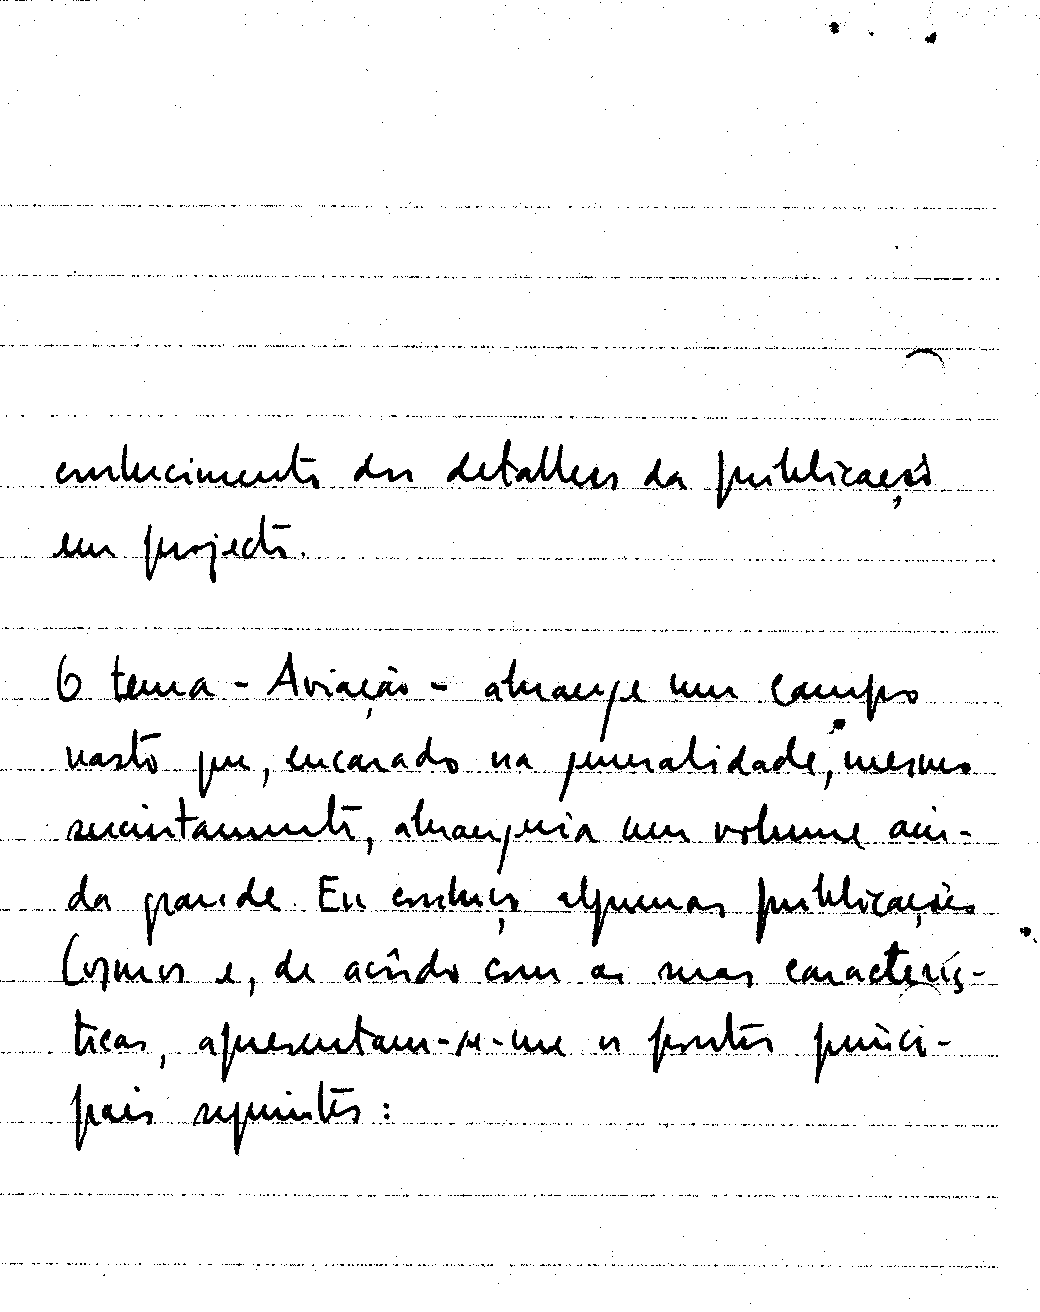 conhecimento dos detalhes da publicação
em projecto.
O tema - Aviação - abrange um campo
vasto que, encarado na generalidade, mesmo
sucintamente, abrangeria um volume ain-
da grande. Eu conheço algumas publicações
Cosmos e, de acôrdo com as suas caracterís-
ticas, apresentam-se-me os pontos princi-
pais seguintes: